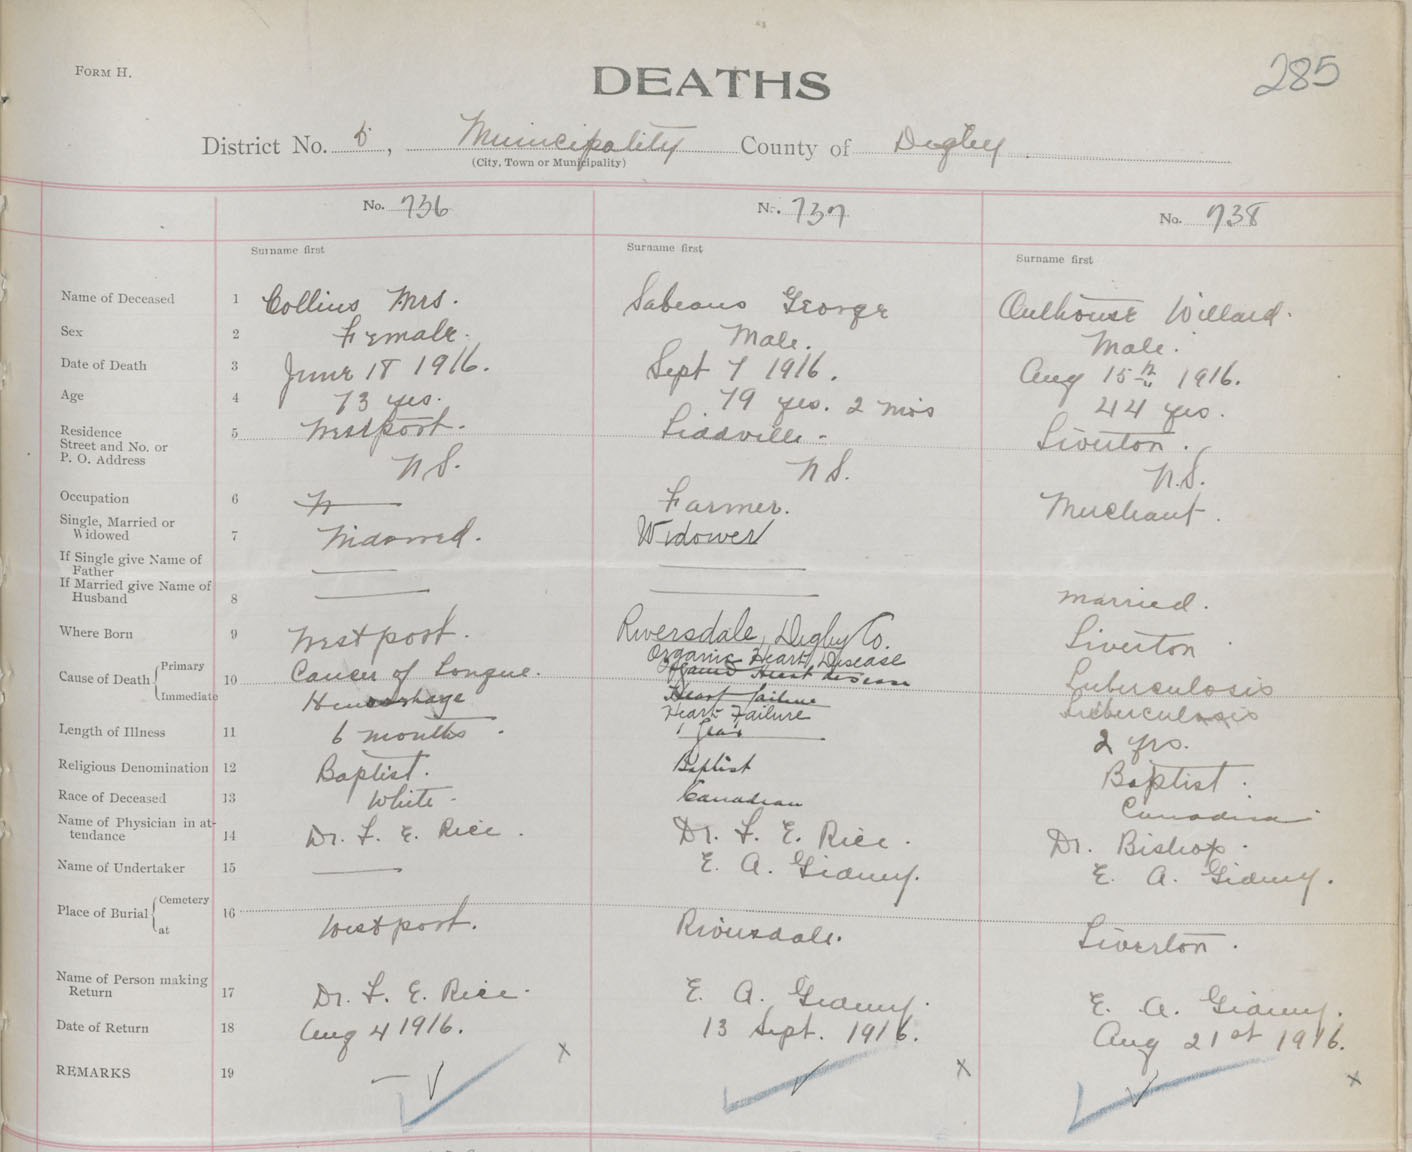 FORM H.
DEATHS
285
District No. 6, Municipality County of Digby
(City, Town or Municipality)
No. 736 No. 737 No. 738
Surname first Surname first Surname first
Name of Deceased 1 Collins Mrs. Sabeans George Outhouse Willard.
Sex 2 Female. Male. Male.
Date of Death 3 June 18 1916. Sept 7 1916. Aug 15th 1916.
Age 4 73 yrs. 79 yrs. 2 mos 44 yrs.
Residence
Street and No. or 5 Westport. Tiverton.
P. O. Address N S. N S. N.S.
Occupation 6 Farmer. Merchant.
Single, Married or
Widowed 7 Widowed. Widower
If Single give Name of
Father
If Married give Name of
Husband 8 married.
Where Born 9 Westport. Riversdale, Digby Co. Tiverton
Cause of Death Primary 10 Cancer of Tongue. Organic Heart Disease Tuberculosis
Organic Heart disease
Heart failure
Immediate Hemorrhage Heart Failure Tuberculosis
Length of Illness 11 6 months. 1 Year 2 yrs.
Religious Denomination 12 Baptist. Baptist Baptist.
Race of Deceased 13 White. Canadian Canadian
Name of Physician in at-
tendance 14 Dr. F. E. Rice. Dr. F. E. Rice. Dr. Bishop.
Name of Undertaker 15 E. A. Gidney. E. A. Gidney.
Place of Burial Cemetery 16
at Westport. Riversdale. Tiverton.
Name of Person making
Return 17 Dr. F. E. Rice. E. A. Gidney. E. A. Gidney.
Date of Return 18 Aug 4 1916. 13 Sept. 1916. Aug 21st 1916.
REMARKS 19